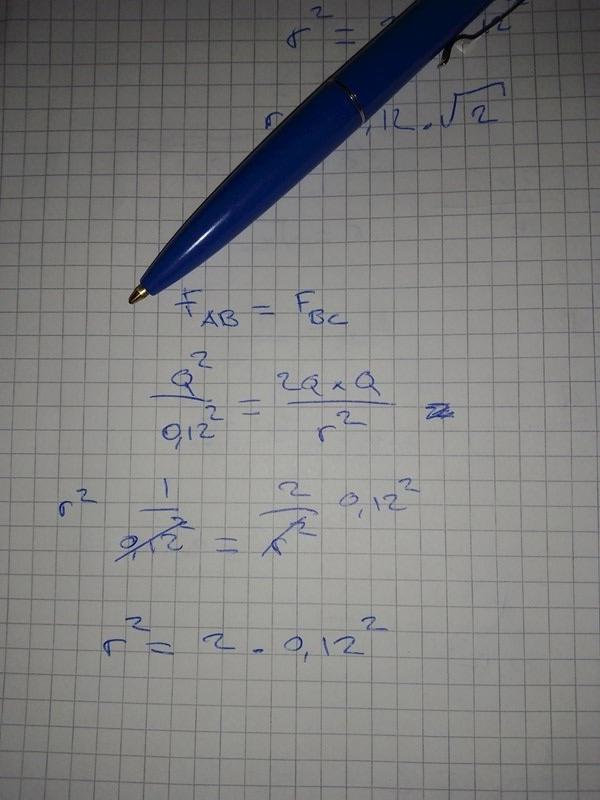 r² = 2 12
r ,12 . √2
F_AB = F_BC
Q² / 0,12² = 2Q x Q / r²
r² 1 / 0,12² = 2 / r² 0,12²
r² = 2 . 0,12²